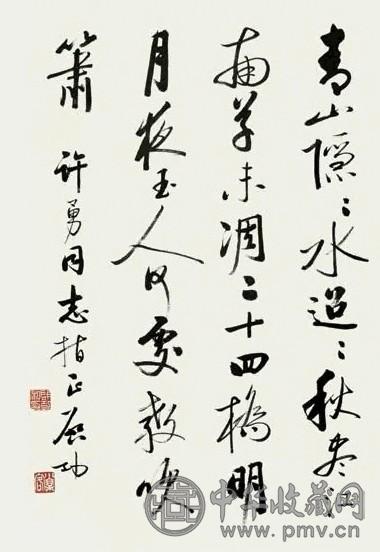 青山隱〻水迢〻秋盡江
南草未凋二十四橋明
月夜玉人何處教吹
簫
許勇同志指正 启功
中华收藏网
www.pmv.cn